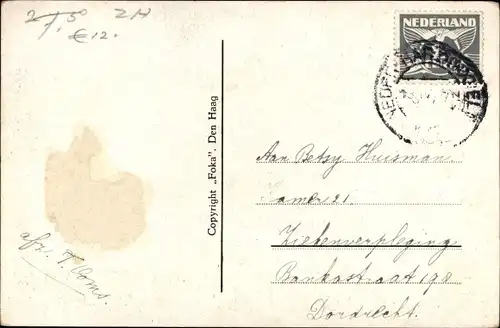 2/50 ZH
€12.
NEDERLAND
Copyright „Foka". Den Haag
Aan Betsy Huisman
Kamer 21.
Ziekenverpleging
Bankastraat 198
Dordrecht.
afz. T. Ooms.